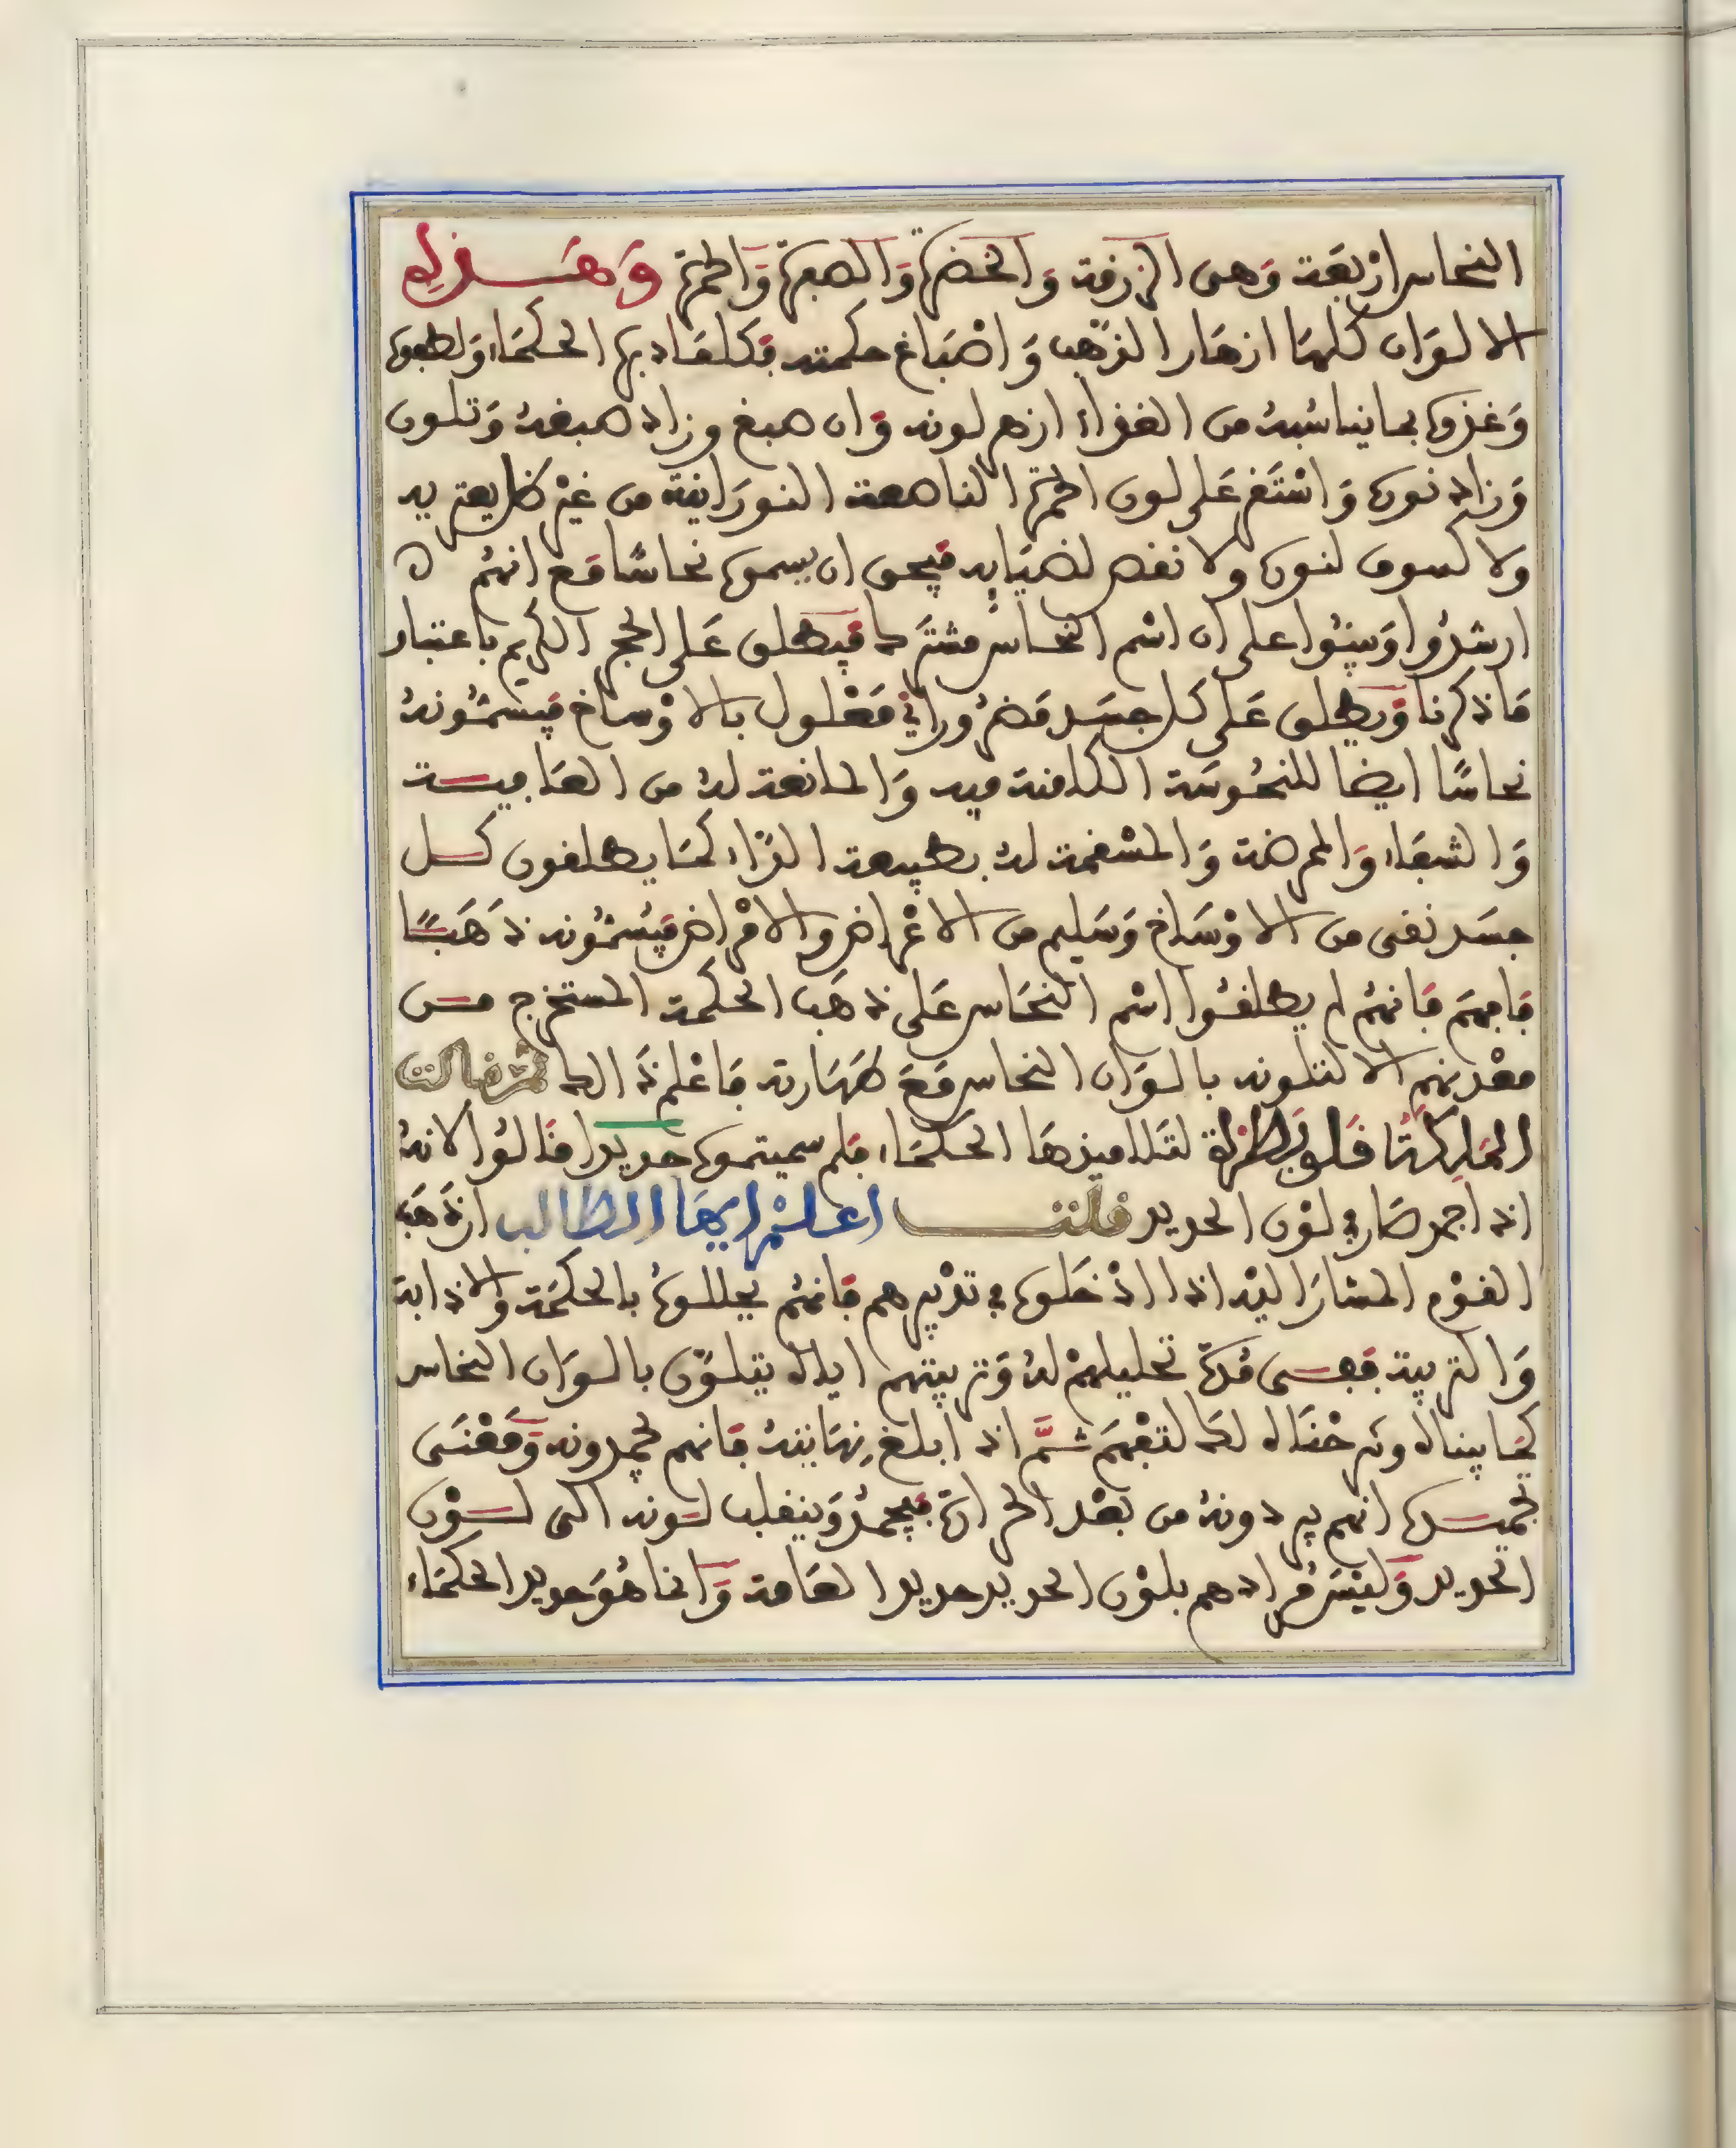 النحاس ارْبَعَة وَهى الزرقة وَالخضرة وَالصفرة وَالحمرة وَهَـــذِهِ
الالوَان كلهَا ازهَار الذهَب وَاصْبَاغ حكمته فكلمَا دبرها الحكمَاء وَلطفوه
وَغذوه بما يناسُبهُ من الغذاء ازهر لونه وَان صبغ وزاد صبغهُ وَتلون
وَزاد نوره وَاسْتَقر عَلى لون الحمرة الناصعة النورَانية من غيْر كلف يعتريه
ولا كسوف لنوره ولا نقص لضيَايه فيحق ان يسموه نحاسًا مَع انهُم ه
ارشدُوا وَبينُوا على ان اسْم النحاس مشتَرك فيطلق عَلى الحجر الكريم باعتبار
مَا ذكرنا وَيطلق عَلى كل جسَد مَضرُور اي مَعْلول بالاوْسَاخ فيسَمُّونهُ
نحاسًا ايضا للنحُوسَة الكامنة فيه وَالمانعة لهُ من العَافيـــة
وَالشفَاء وَالمرضة وَالمسْقمة لهُ بطبيعة الدَّاء كمَا يطلقون كـــل
جسَد نقى من الاوْسَاخ وَسَليم من الاعْرَاض والامْرَاض فيُسَمُّونه ذهَبًــا
فافهَم فَانهُم لم يطلقُوا اسْم النحَاس عَلى ذهَب الحكمة المستخرج مــن
معْدنهم الا لتلونه بالوَان النحاس مَعَ طهَارته فاعْلم ذَالك ثمَّ قالت
المَلِكَةُ قلوبَطرة لتلاميذهَا الحكمَاء فلم سميتموه حديدا قالوُا لانهُ
اذا جمد صَار في لوْن الحديد قلتـــــ اعلـمْ ايهَا الطالب ان ذهَب
القوْم المشارَ اليْه اذا ادْخَلوه في تدْبيرهم فانهُم يحللوهُ بالحكمَة والاذابة
وَالتربية ففـــى مُدة تحليلهمْ لهُ وَتربيتهم اياه يتلوَّن بالوَان النحاس
كمَا بيناه وَشرحْنَاه لك لتفهَم ثــمَّ اذا بلغ نهَايتهُ فانهم يجمدونه وَمَعْنَى
تجميـــده انهم يبردونهُ من بعْد الحرارة فيجمدُ وَينقلب لــونه الى لــوْن
الحديد وَليْسَ مُرادهم بلوْن الحديد حديدا لعَامة وَانما هُوَ حديد الحكمَاء